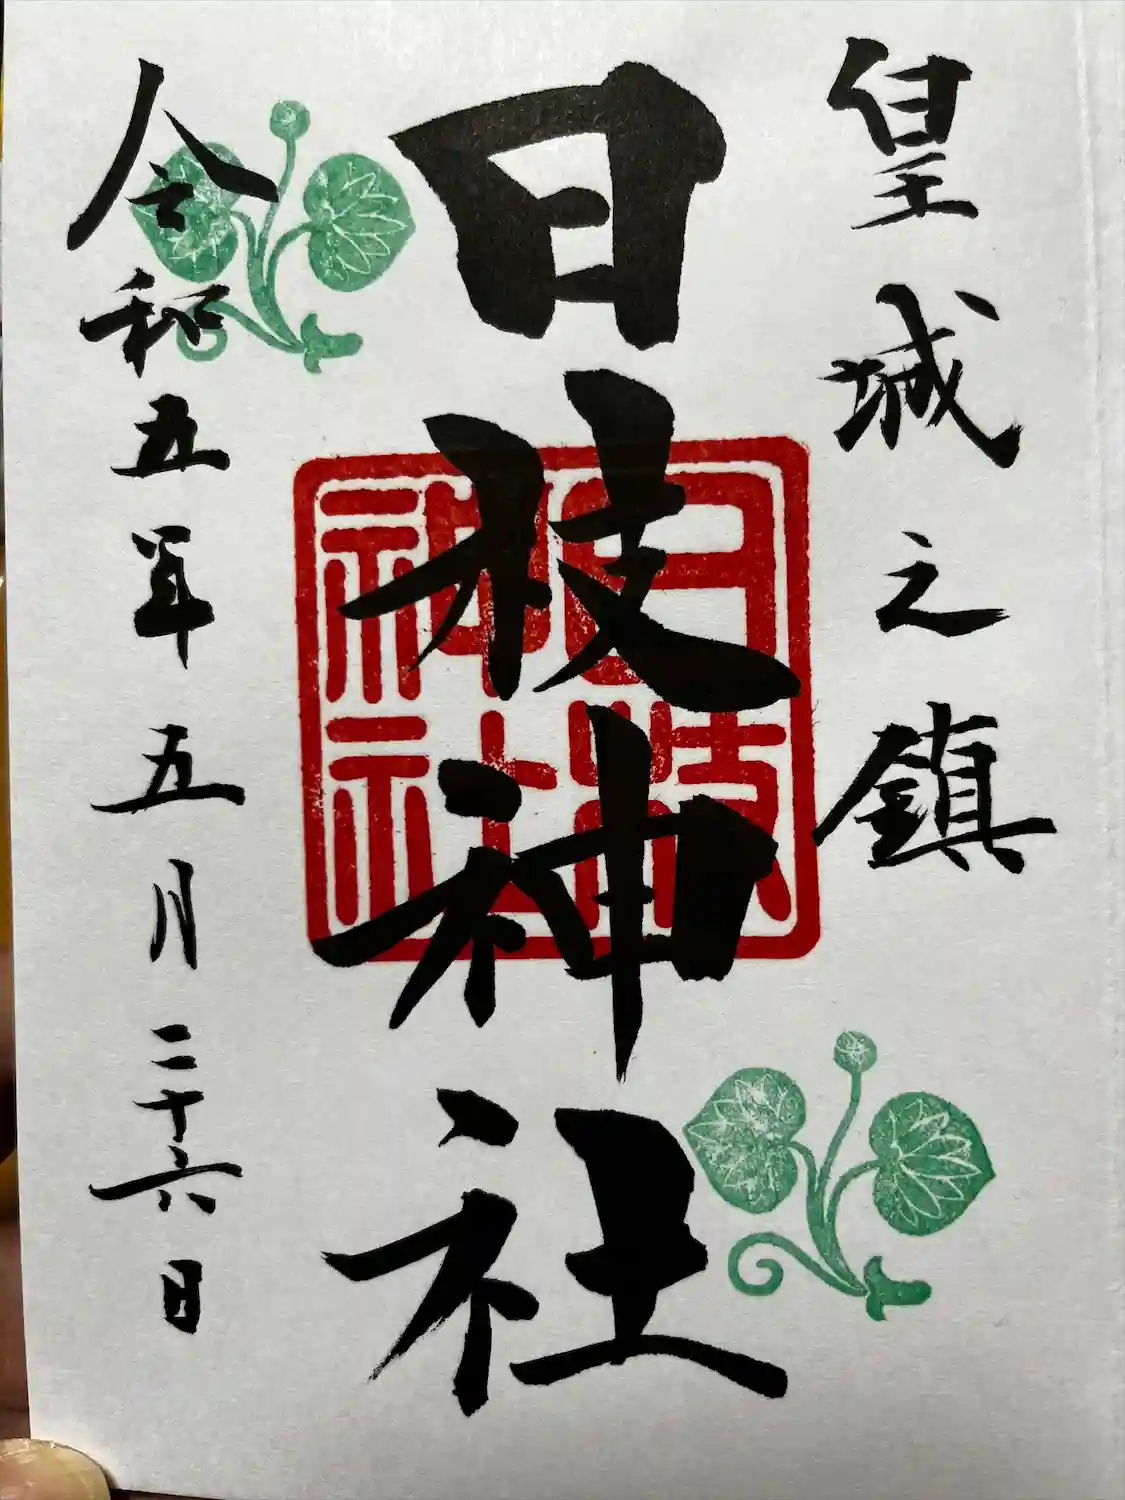 皇城之鎮
日枝神社
日枝
神社
令和五年五月二十六日